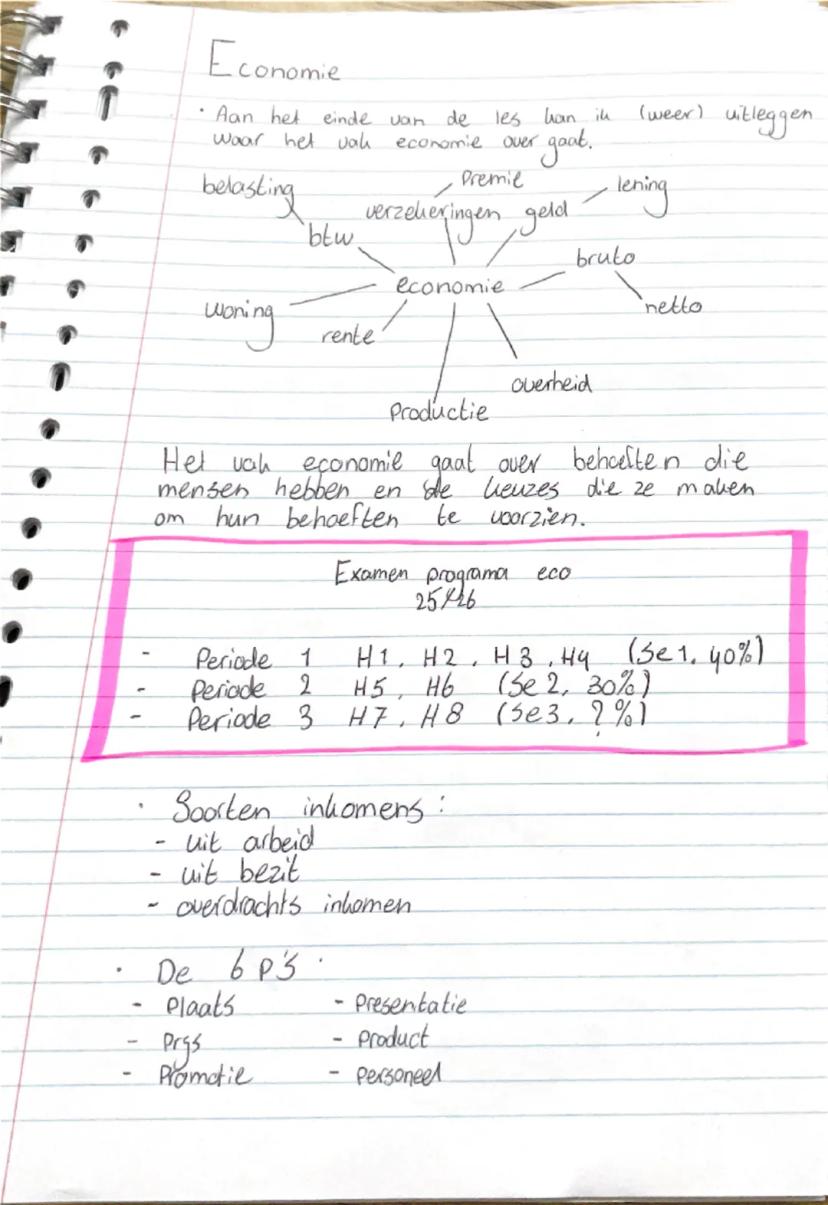 Economie
· Aan het einde van de les kan ik (weer) uitleggen
waar het vak economie over gaat.
belasting
premie
lening
verzekeringen
geld
btw
bruto
economie
woning
netto
rente
overheid
Productie
Het vak economie gaat over behoeften die
mensen hebben en de keuzes die ze maken
om hun behoeften te voorzien.
Examen programa eco
25/26
- Periode 1 H1, H2, H3, H4 (Se1, 40%)
- Periode 2 H5, H6 (Se2, 30%)
- Periode 3 H7, H8 (Se3, ?%)
· Soorten inkomens:
- uit arbeid
- uit bezit
- overdrachts inkomen
· De 6 P's
- Plaats - Presentatie
- Prijs - Product
- Promotie - Personeel